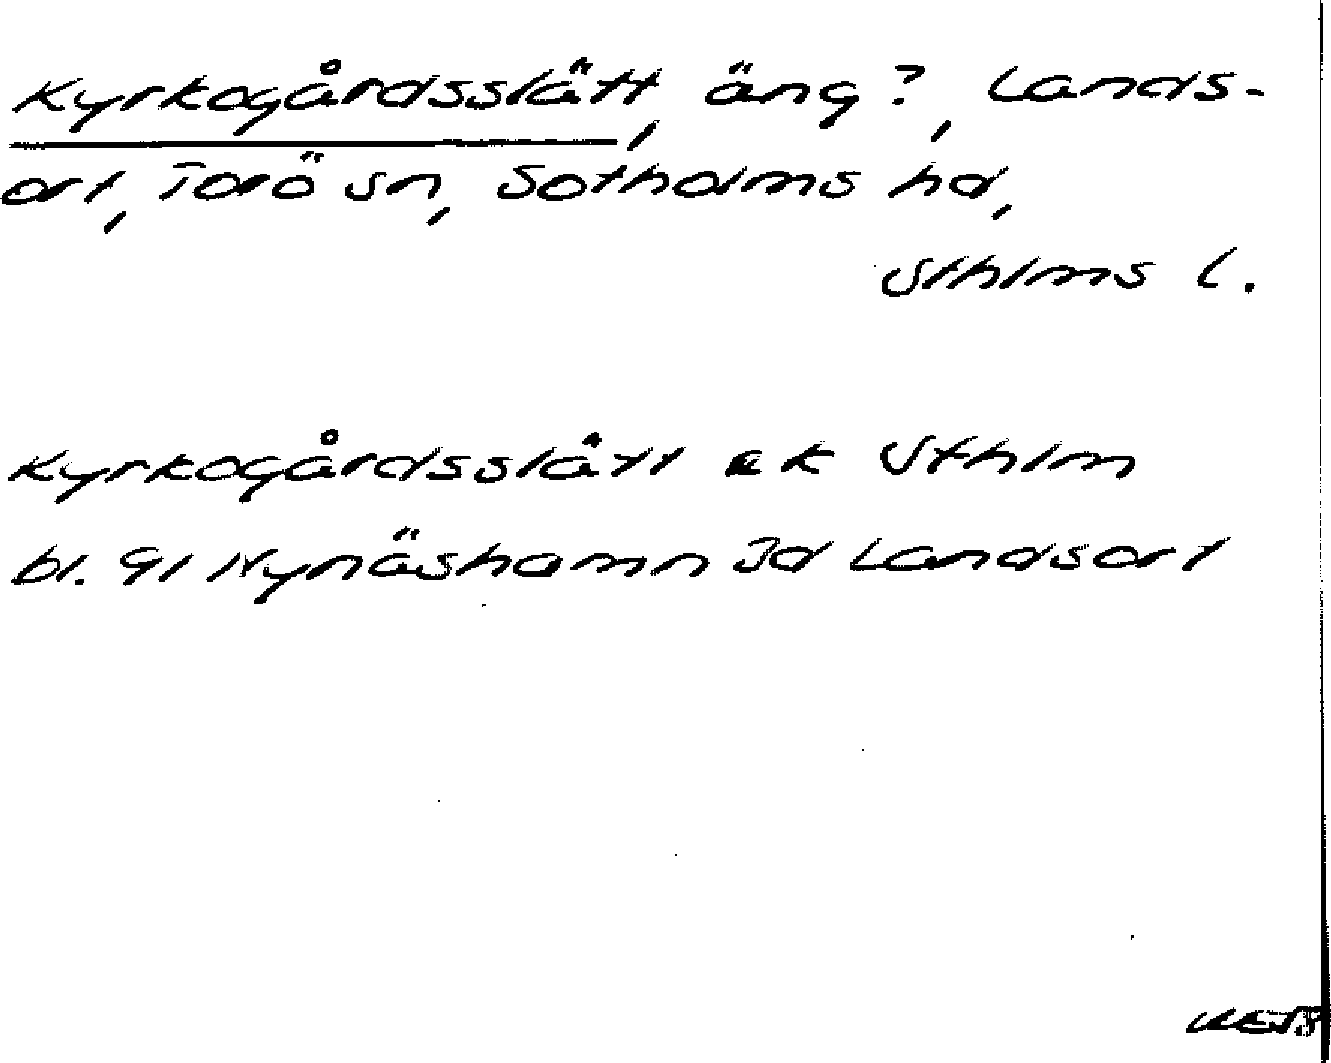 Kyrkogårdsslätt, äng?, Lands-
ort, Torö sn, Sotholms hd,
Sthlms l.
Kyrkogårdsslått ek Sthlm
bl. 91 Nynäshamn 3d Landsort